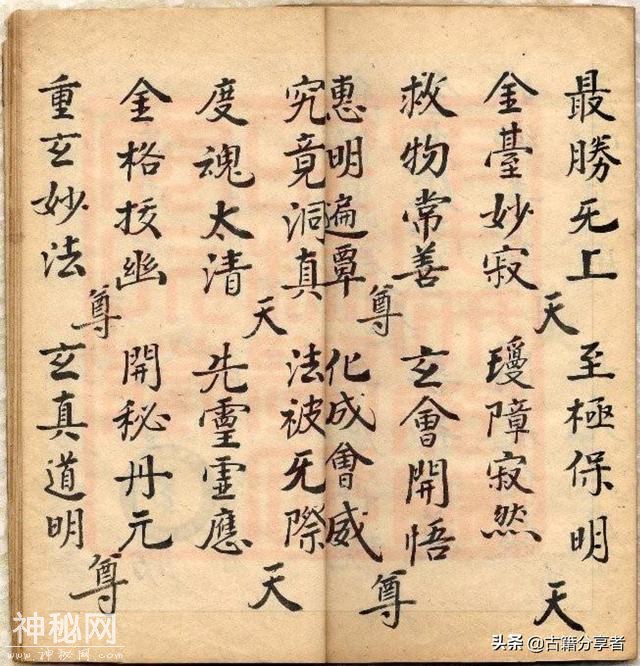 最勝旡上 至極保明
天 天
金臺妙寂 瓊障寂然
救物常善 玄會開悟
尊 尊
惠明遍覃 化成會威
究竟洞真 法被旡際
天 天
度魂太清 先靈靈應
金格挍幽 開秘丹元
尊 尊
重玄妙法 玄真道明
神秘网
头条 @古籍分享者